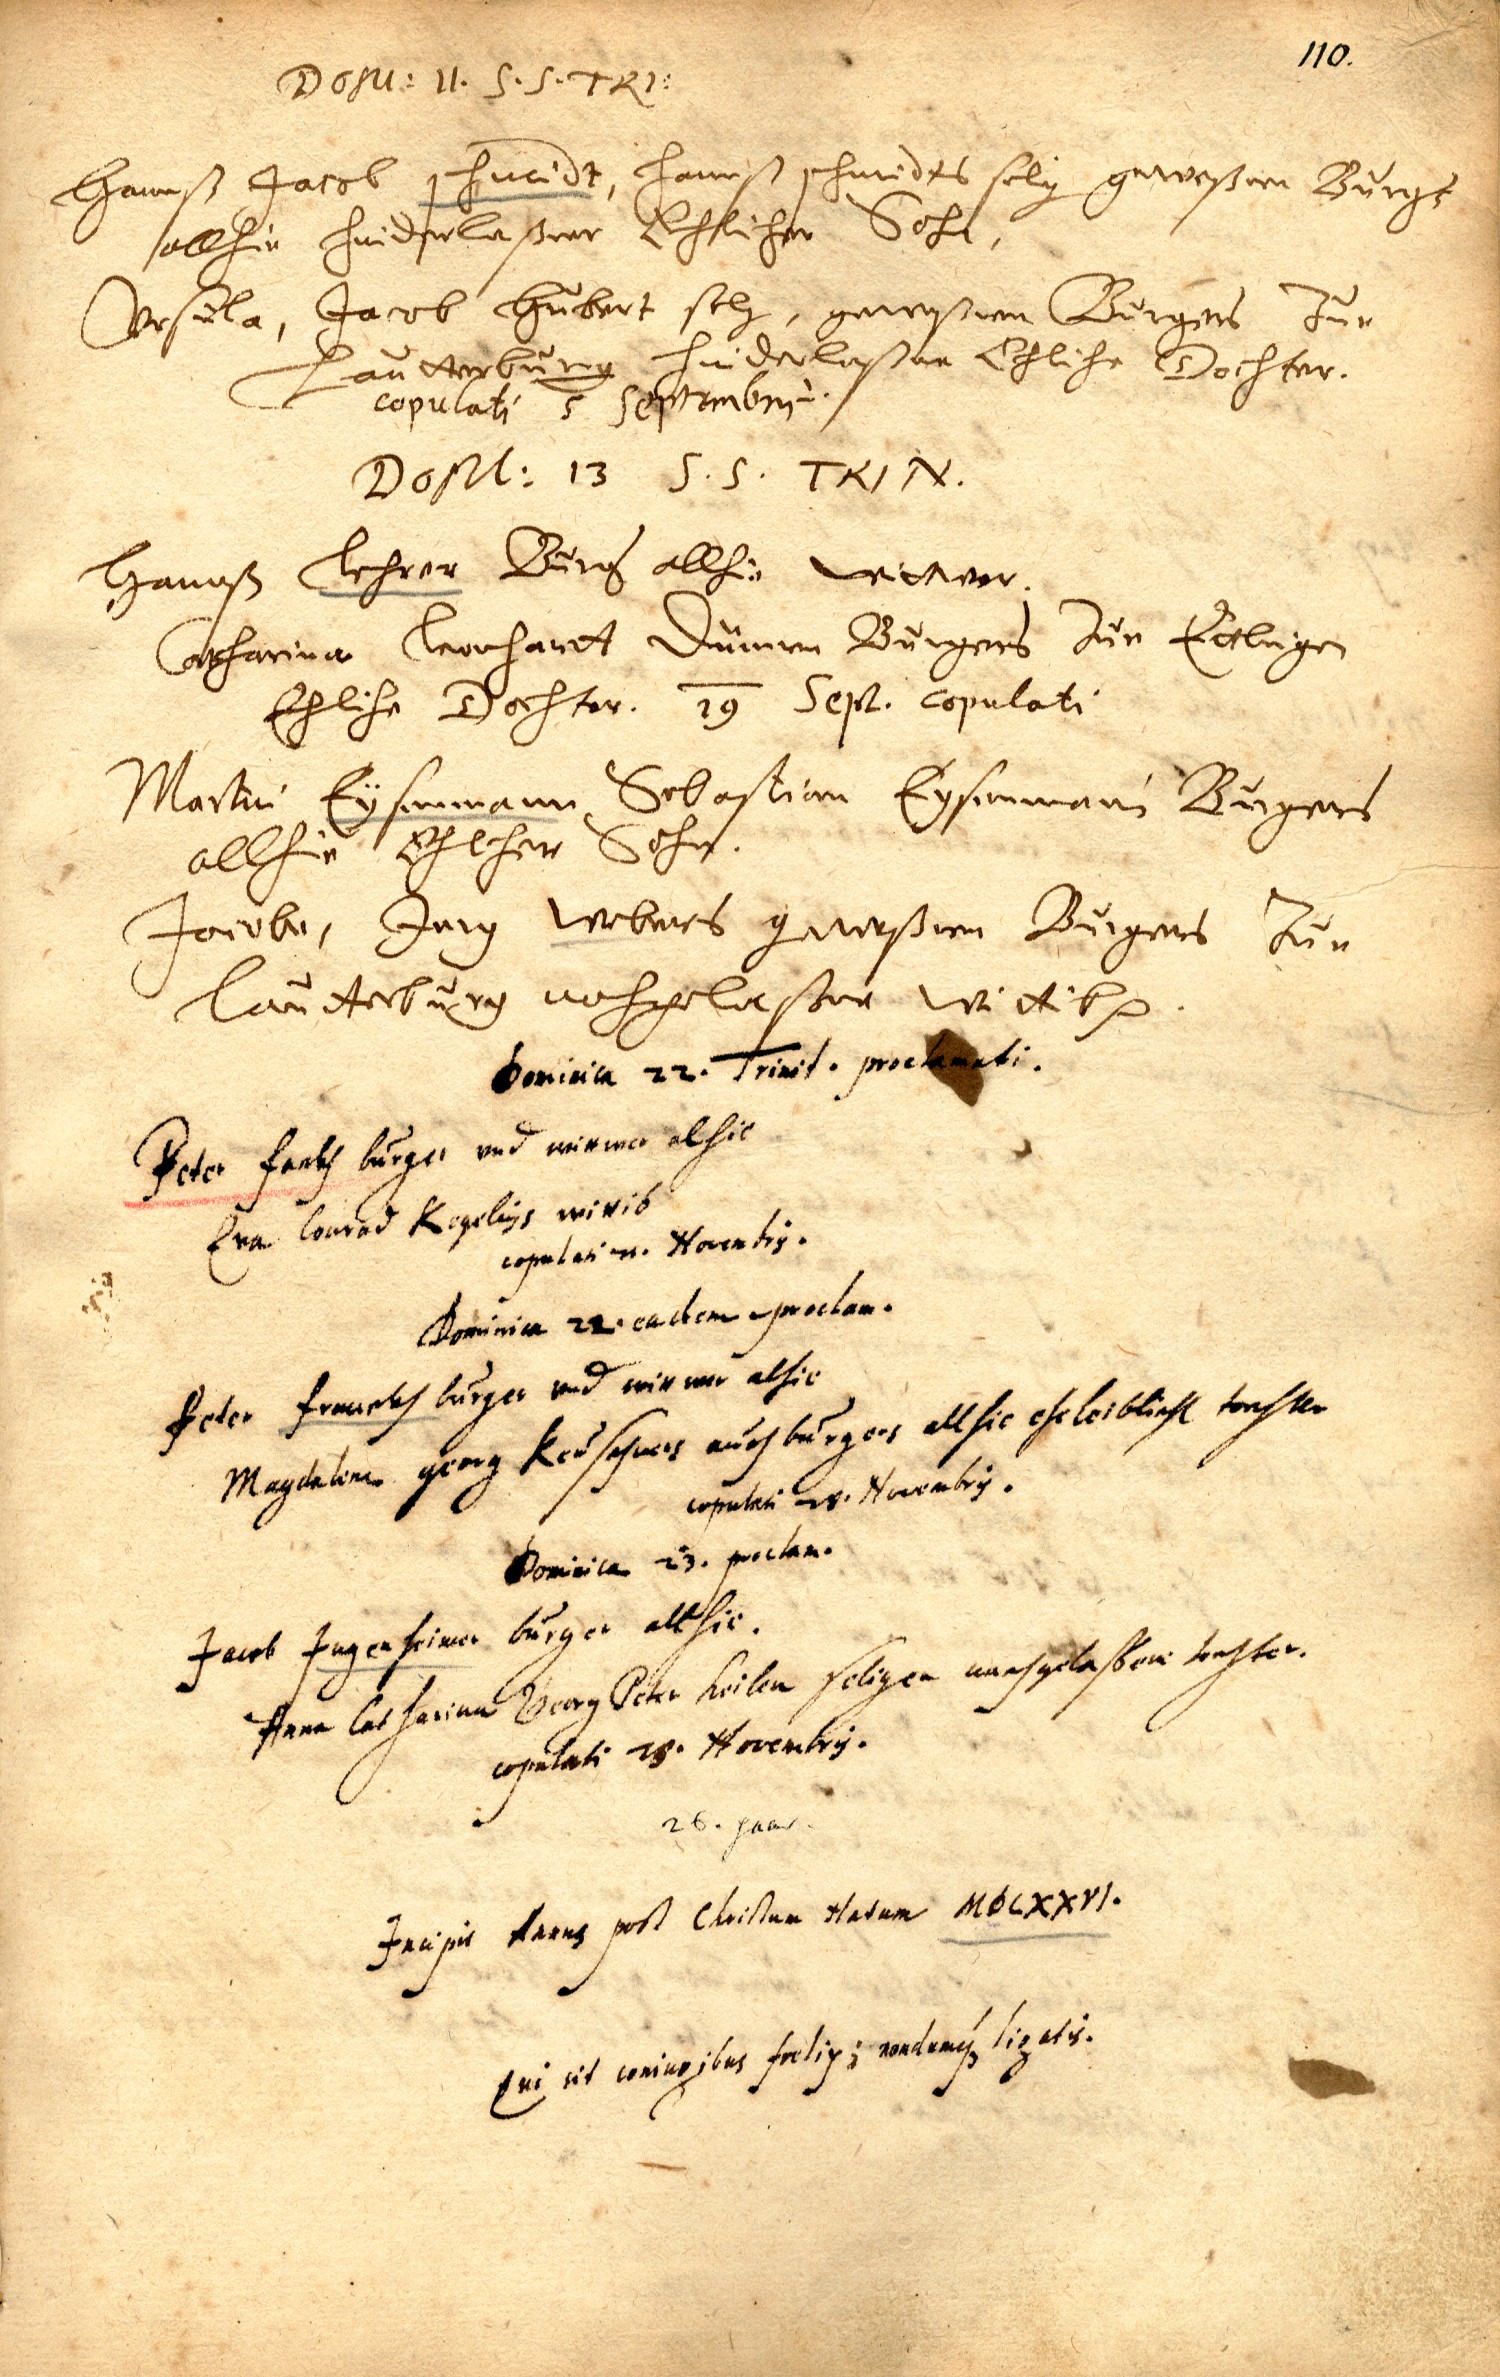 110.
Dom: 11. S. S. TRI:
Hannß Jacob Schmidt, Hannß Schmidts selig geweßnen Burgs
allhie hinderlaßner Ehlicher Sohn,
Vrsula, Jacob Hubert selig, geweßnen Burgers Zue
Lautterburg hinderlaßne Ehliche Dochter.
copulati 5 Septembris.
Dom: 13 S. S. TRIN.
Hannß Lehrer Burg allhie wittwer.
Catharina Leonhardt Burgers Zue Ettlingen
Ehliche Dochter. 19 Sept. copulati
Martin Eysenmann Sebastian Eysenmann Burgers
allhie Ehlicher Sohn.
Jacobe, Jerg Webers geweßnen Burgers Zue
Lautterburg nachgelaßne Wittib.
Dominica 22. Trinit. proclamati.
Peter burger vnd witwer alhie
Eva Conrad wittib
copulati Novembris.
Dominica 22. eadem proclam.
Peter burger vnd witwer alhie
Magdalena georg auch burgers allhie eheleibliche tochter
copulati 28. Novembris.
Dominica 23. proclam.
Jacob Ingenheimer burger allhie.
Anna Catharina Georg Peter seligen nachgelaßene tochter.
copulati 28. Novembris.
26. Jaar.
Incipit Annus post Christum Natum MDCXXVI.
Qui sit coniugibus foelix; nondumq; ligatis.